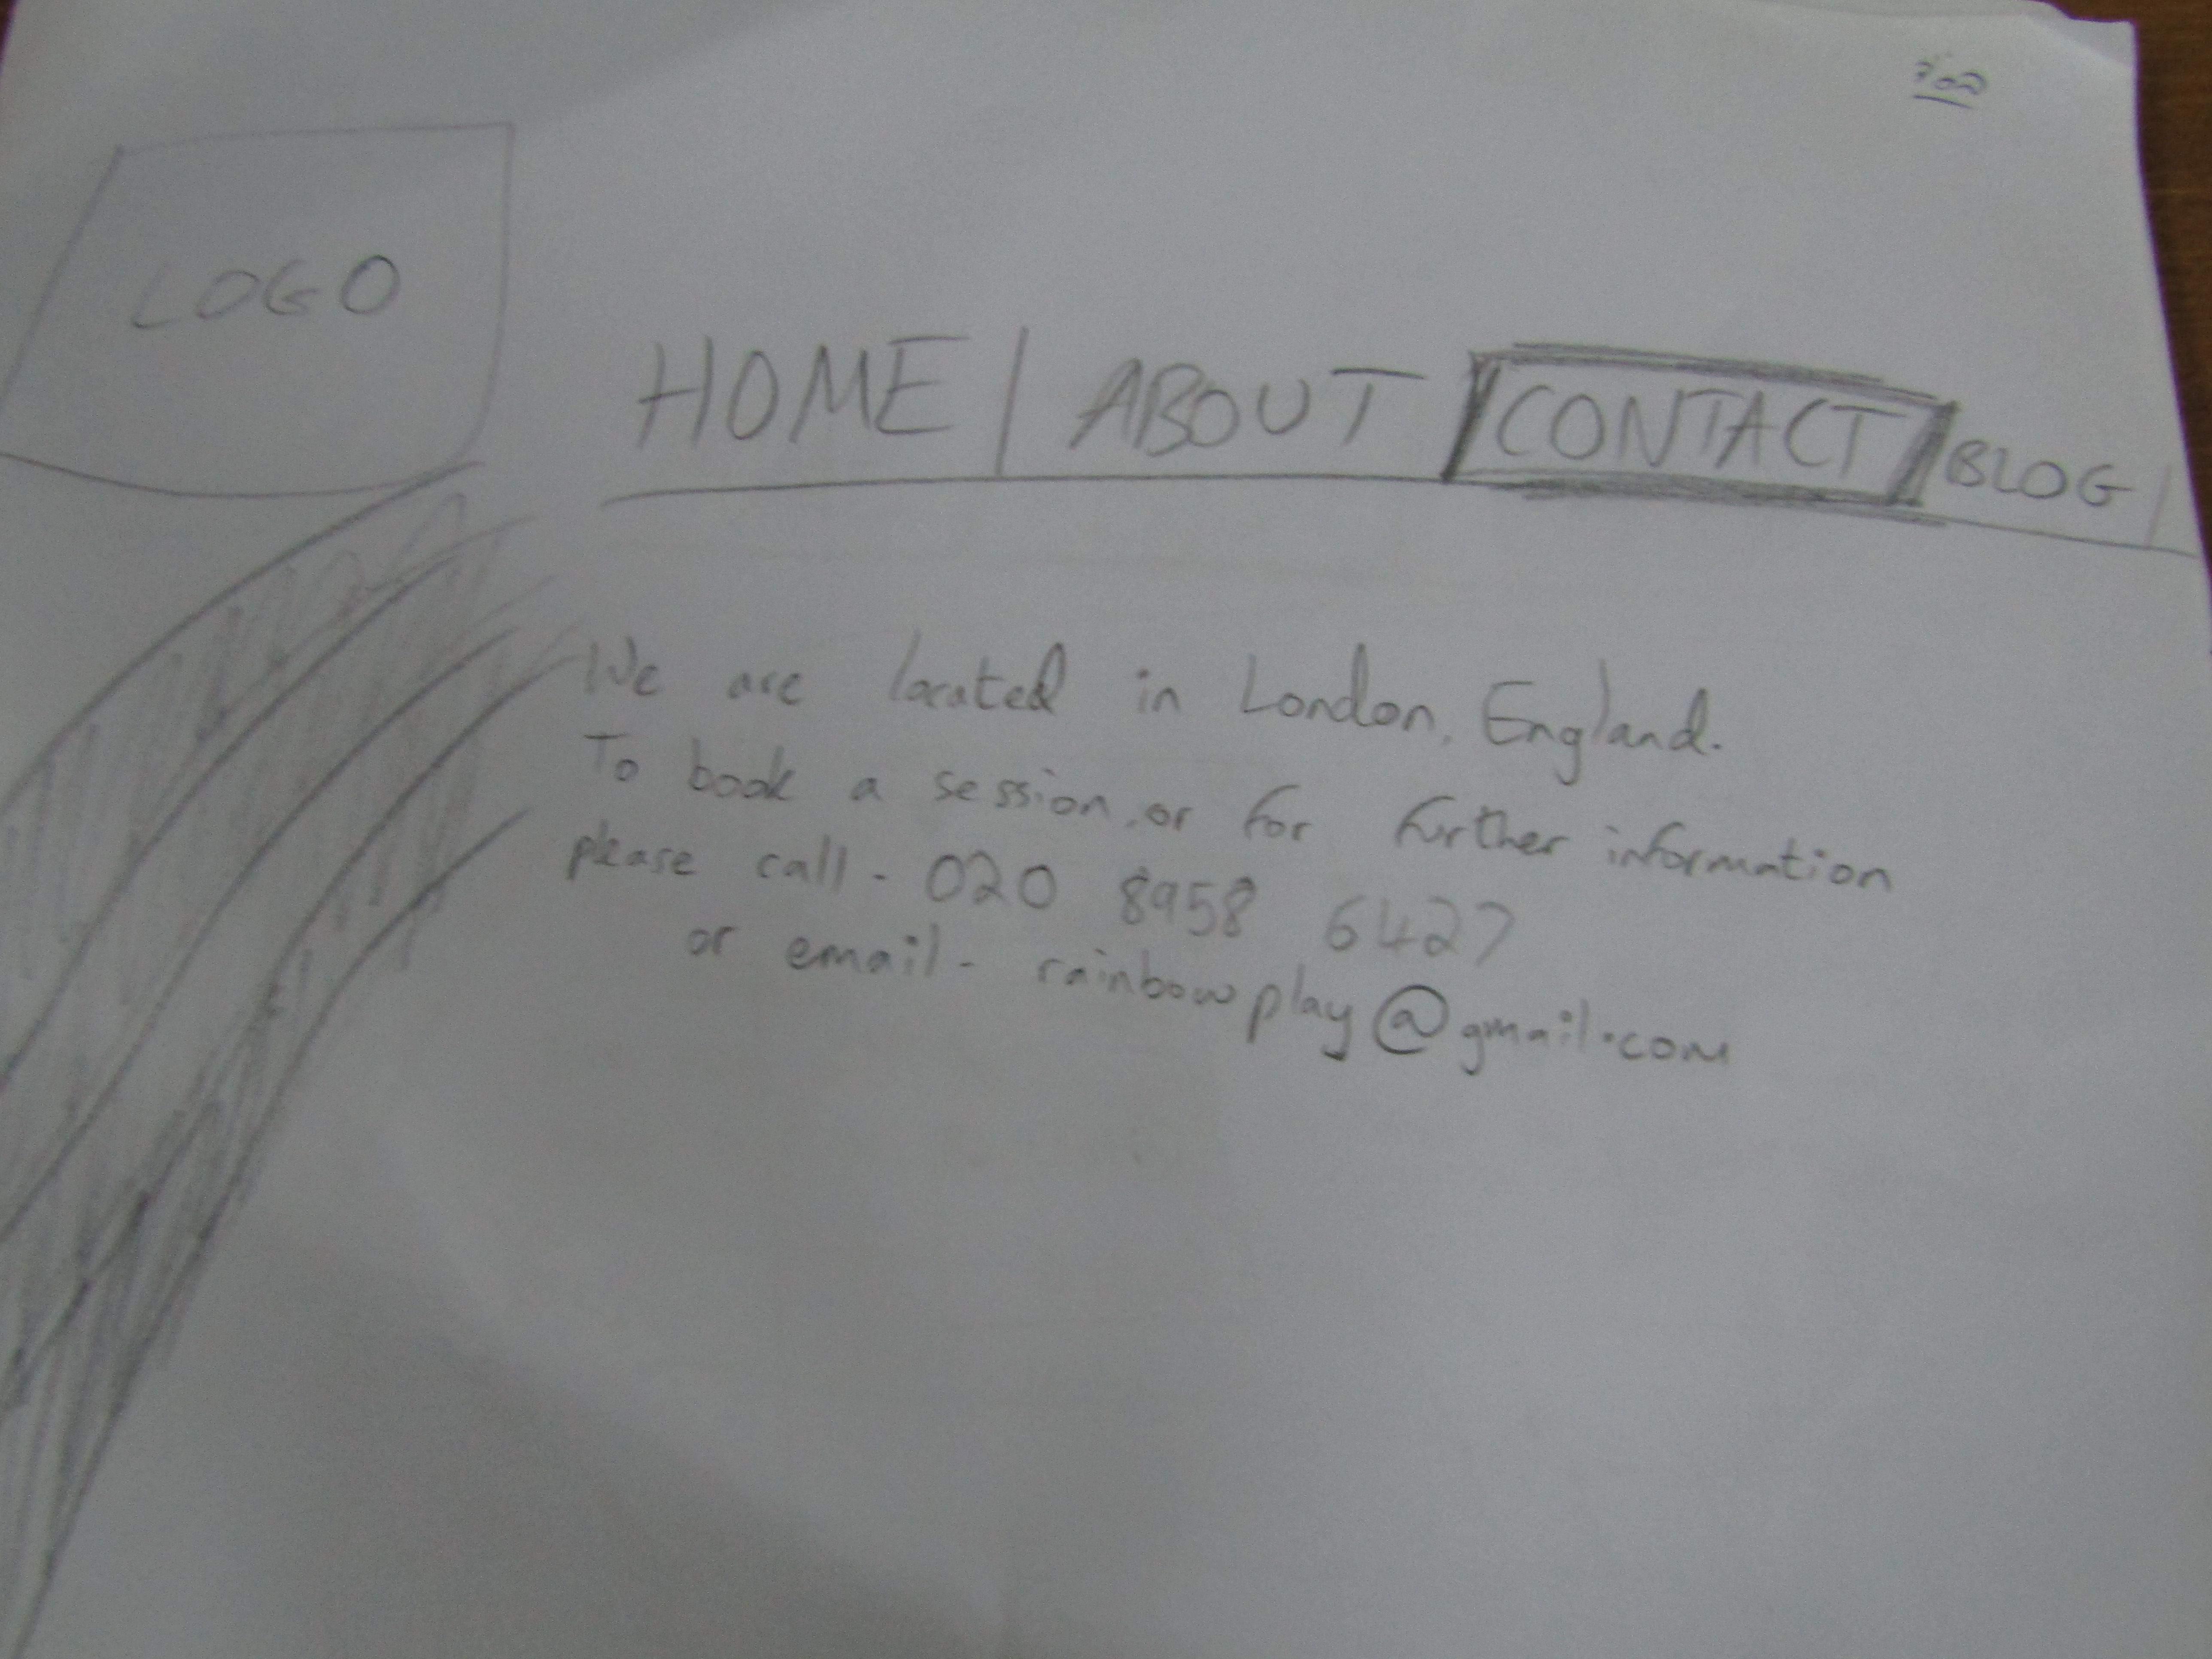 LOGO
HOME / ABOUT / CONTACT / BLOG /
We are located in London, England.
To book a session, or for further information
please call - 020 8958 6427
or email - rainbowplay@gmail.com